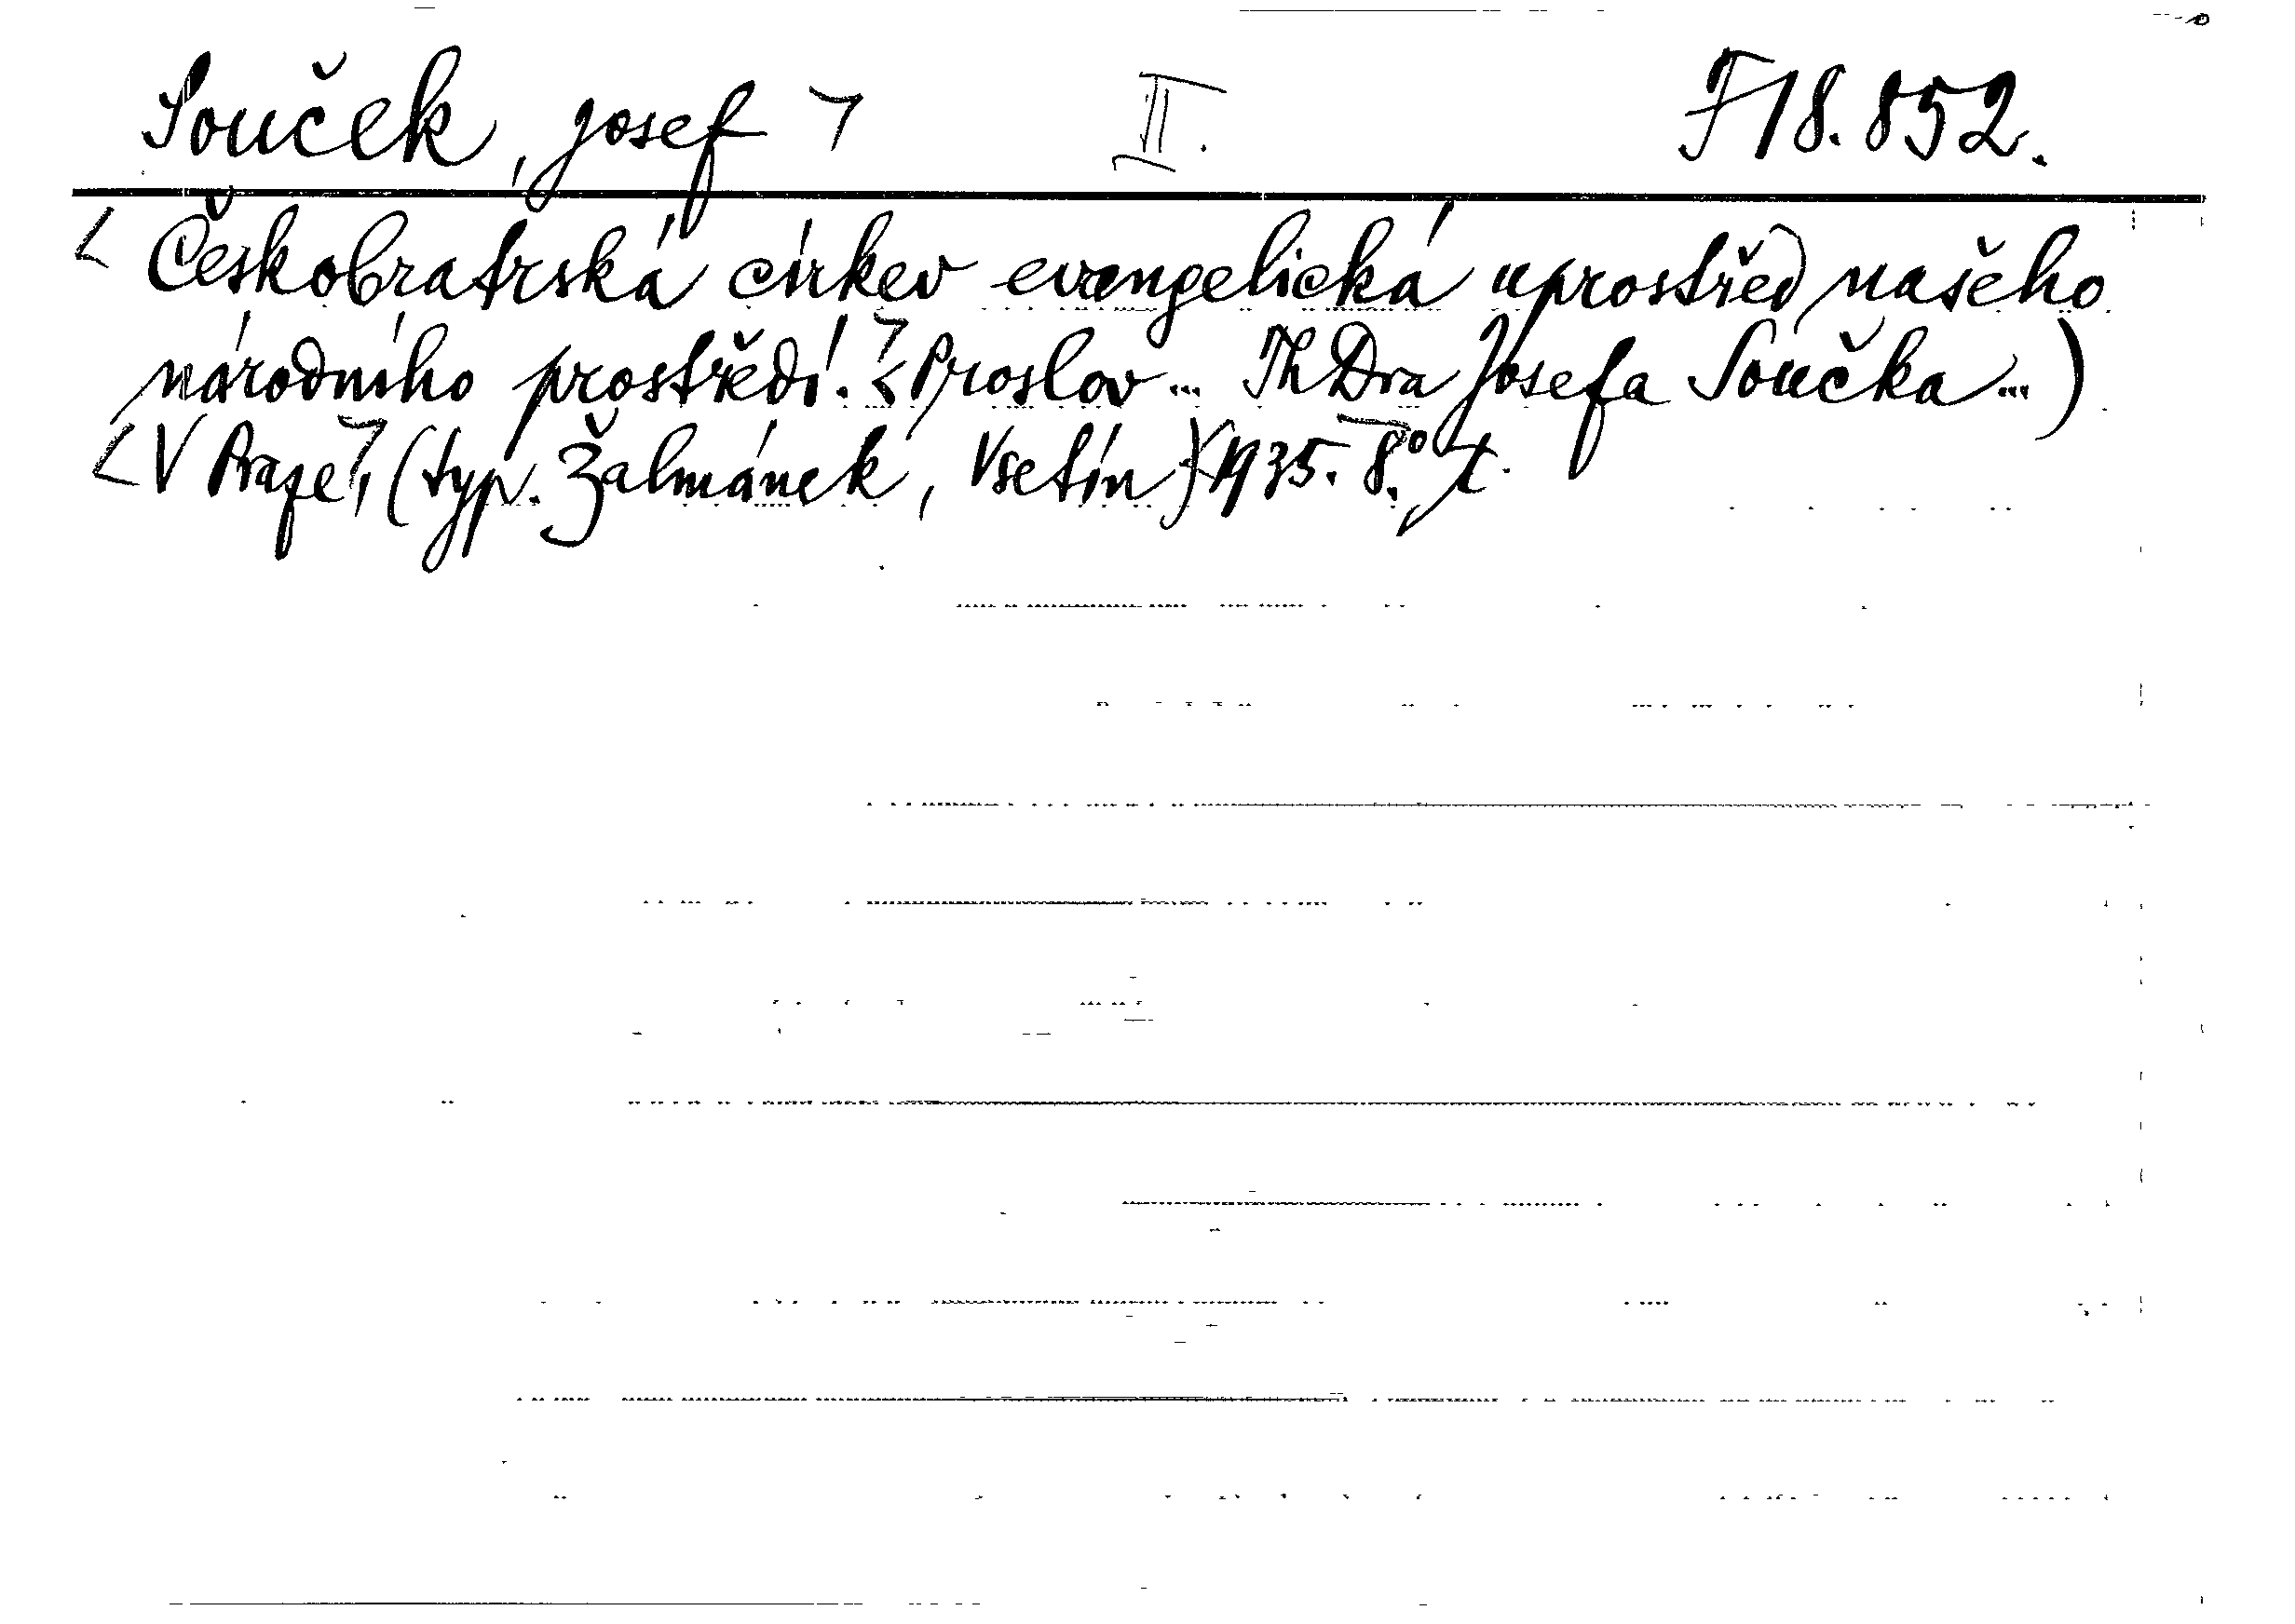 Souček, Josef II. F 18.852.
Českobratrská církev evangelická uprostřed našeho
národního prostředí. (Proslov... ThDra Josefa Součka...)
V Praze, (typ. Žalmánek, Vsetín) 1935. 8.°